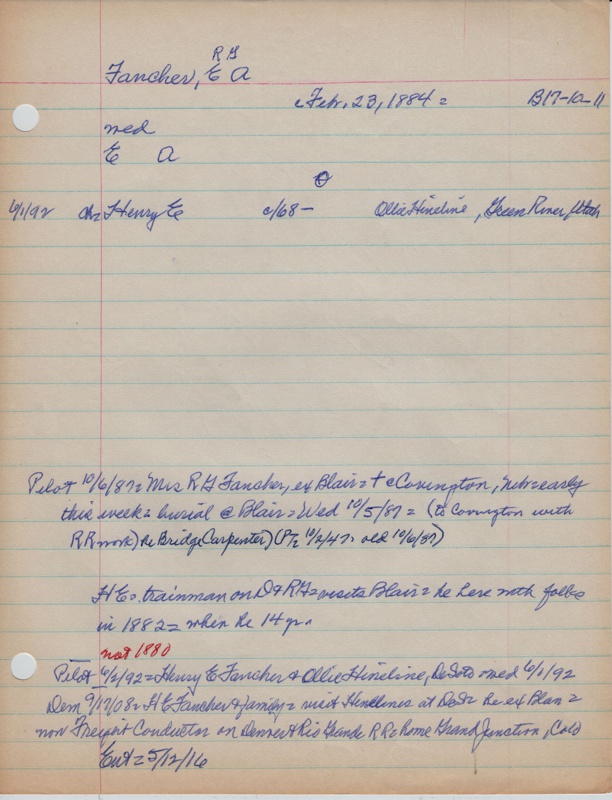 R G
Fancher, E A
c Feb. 23, 1884 = B17-10-11
wed
E A
6/1/92 ch = Henry E c/68 - Ollie Hineline, Green River, Utah
Pilot 10/6/87 = Mrs R G Fancher, ex Blair = + c Covington, Neb = early
this week = burial @ Blair = Wed 10/5/87 = (to Covington with
RR work) he Bridge Carpenter) 10/6/87)
H E = trainman on D & RG = visits Blair = he here with folks
in 1882 = when he 14 yr.
not 1880
Pilot 6/2/92 = Henry E Fancher & Ollie Hineline, DeSoto wed 6/1/92
Dem 9/17/08 = H E Fancher & family = visit Hinelines at DeS = he ex Blair =
now Freight Conductor on Denver & Rio Grande RR = home Grand Junction, Colo
Ent = 5/12/16